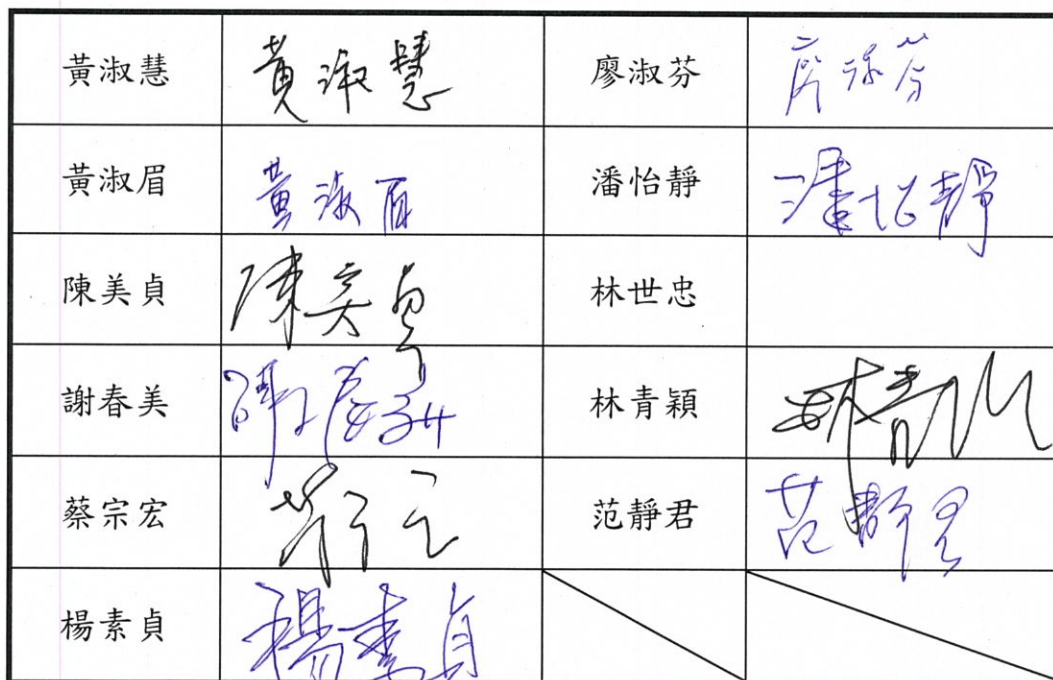 黃淑慧 黃淑慧 廖淑芬 廖淑芬
黃淑眉 黃淑眉 潘怡靜 潘怡靜
陳美貞 陳美貞 林世忠
謝春美 林青穎 林青
蔡宗宏 范靜君 范靜君
楊素貞 楊素貞